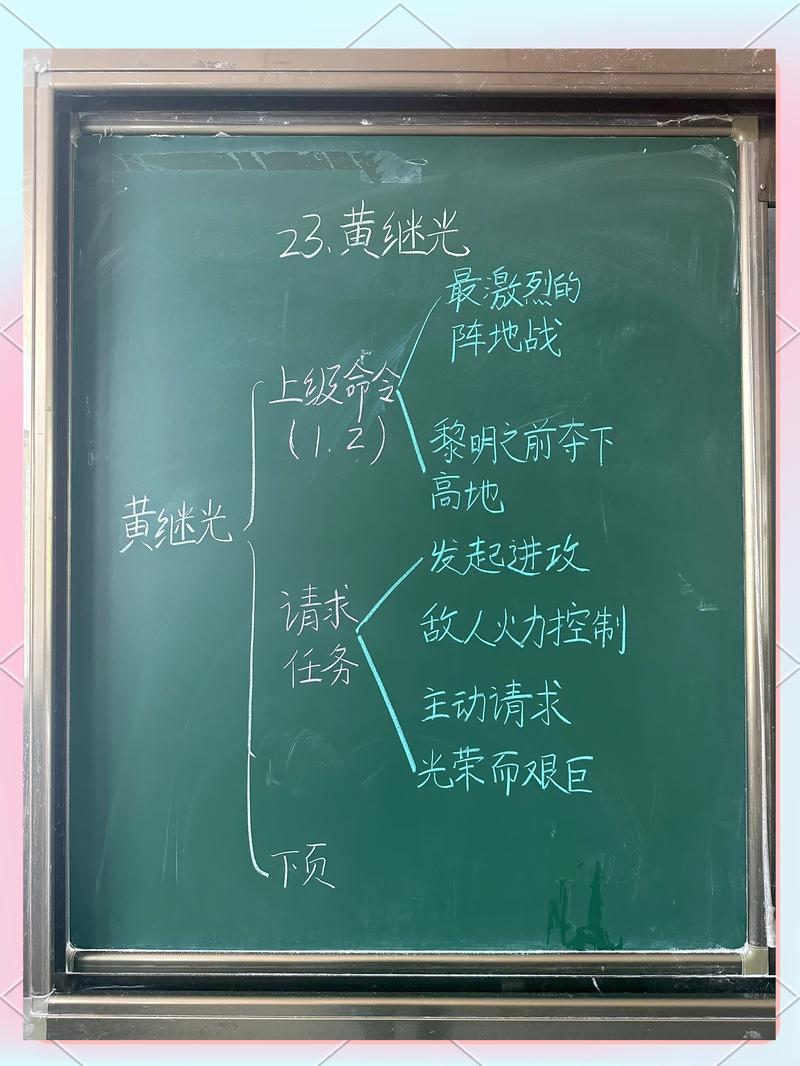 23.黄继光
黄继光
上级命令
(1.2)
最激烈的
阵地战
黎明之前夺下
高地
请求
任务
发起进攻
敌人火力控制
主动请求
光荣而艰巨
下页